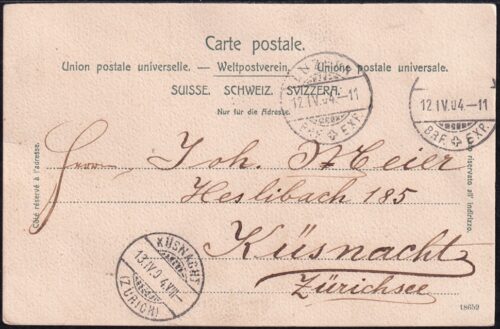 Carte postale.
Union postale universelle. — Weltpostverein. — Unione postale universale.
SUISSE. SCHWEIZ. SVIZZERA.
Nur für die Adresse.
12.IV.04.–11
BRF. EXP.
12.IV.04.–11
BRF. EXP.
Côté réservé à l'adresse.
Joh. Meier
Heslibach 185
Küsnacht
Zürichsee
riservato all' indirizzo.
KÜSNACHT
(ZÜRICH)
18652